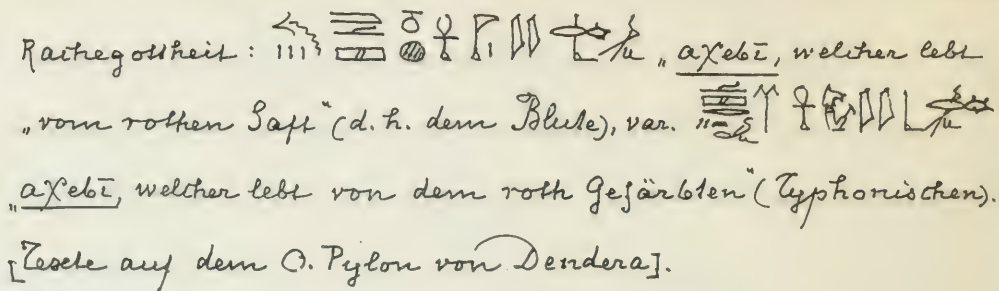 Rachegottheit: „aχebī, welcher lebt
„vom rothen Saft“ (d. h. dem Blute), var.
„aχebī, welcher lebt von dem roth Gefärbten“ (Typhonischen).
[Texte auf dem O. Pylon von Dendera].